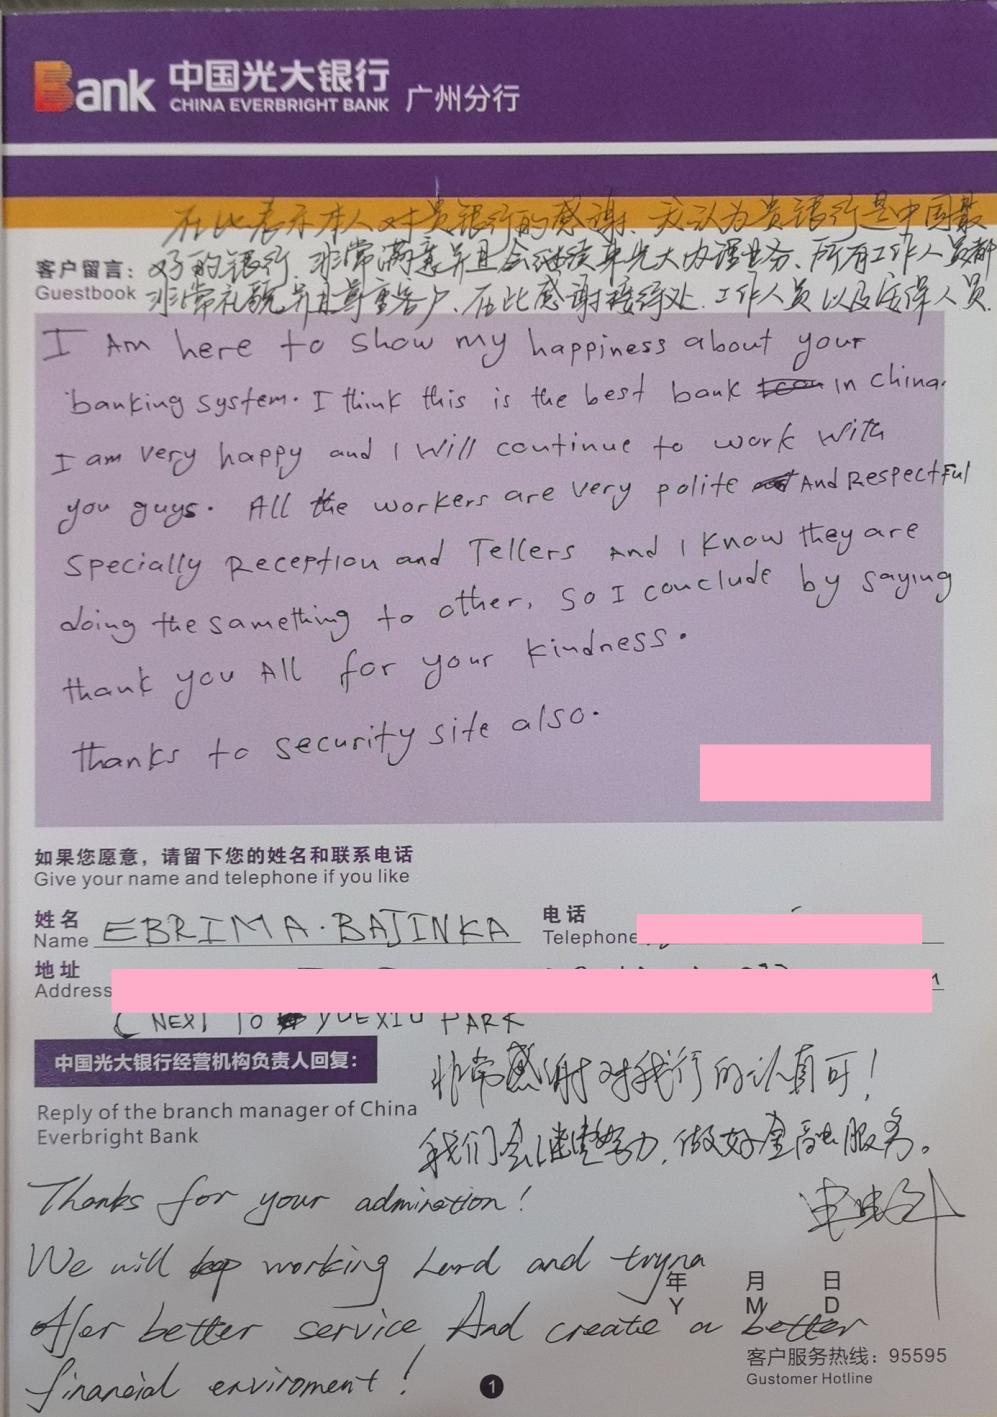 Bank 中国光大银行 广州分行
CHINA EVERBRIGHT BANK
在此表示本人对贵银行的感谢、我认为贵银行是中国最
客户留言：
Guestbook
好的银行、非常满意并且会继续来光大办理业务、所有工作人员都
非常礼貌并且尊重客户、在此感谢接待处、工作人员以及安保人员.
I Am here to show my happiness about your
banking system. I think this is the best bank in china.
I am very happy and I will continue to work with
you guys. All the workers are very polite And Respectful
specially Reception and Tellers And I know they are
doing the samething to other, so I conclude by saying
thank you All for your kindness.
thanks to security site also.
如果您愿意，请留下您的姓名和联系电话
Give your name and telephone if you like
姓名
Name EBRIMA. BAJINKA
电话
Telephone
地址
Address
( NEXT TO YUEXIU PARK
中国光大银行经营机构负责人回复：
Reply of the branch manager of China
Everbright Bank
非常感谢对我行的认真可！
我们会继续努力，做好金融服务。
Thanks for your admiration!
We will keep working hard and tryna
offer better service And create a better
financial enviroment!
年 月 日
Y M D
客户服务热线：95595
Gustomer Hotline
1